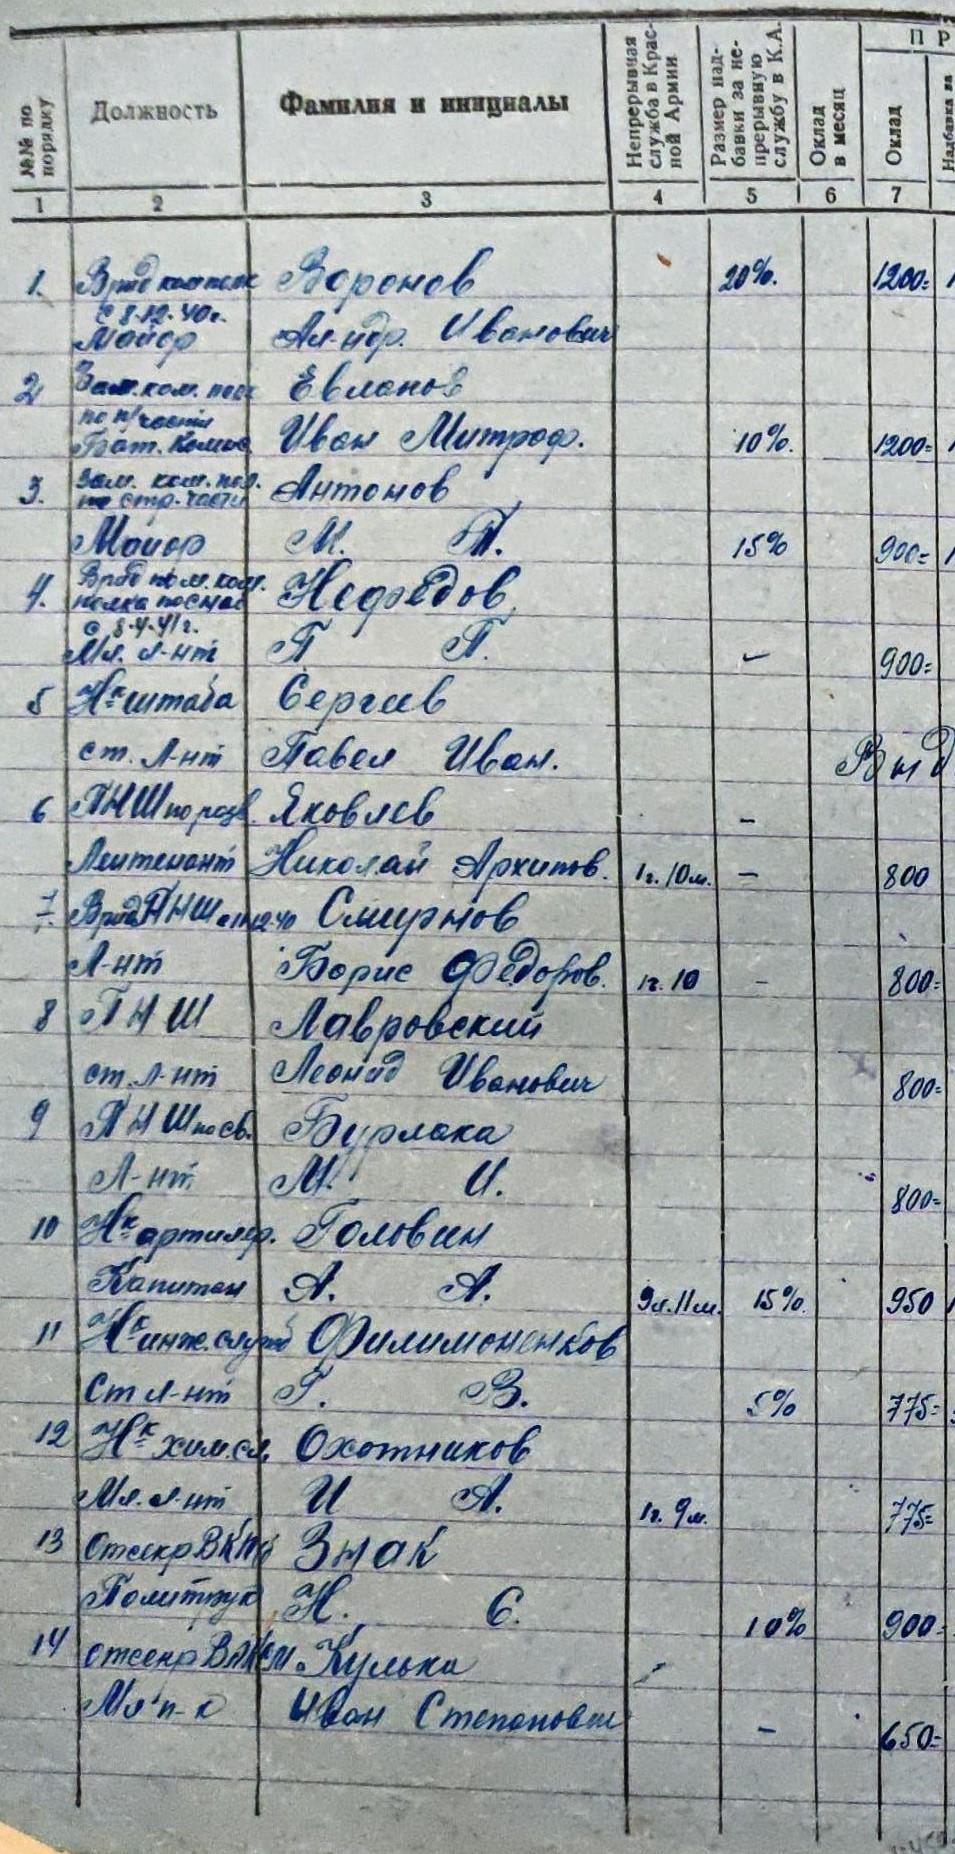 П Р
№№ по порядку
Должность
Фамилия и инициалы
Непрерывная служба в Красной Армии
Размер надбавки за непрерывную службу в К.А.
Оклад в месяц
Оклад
Надбавка за
1 2 3 4 5 6 7
1. Врид ком полк Воронов 20%. 1200=
с 8.12.40г.
Майор Ал-ндр. Иванович
2 Зам. ком. полк Евланов
по п/части
Бат. Комис. Иван Митроф. 10%. 1200=
3. Зам. ком. пол. Антонов
по стр. части
Майор М. П. 15% 900=
4. Врид пом. ком. Нефедов
полка по снаб
с 8.4.41г.
Мл. л-нт П П. 900=
5 Нк штаба Сергеев
ст. л-нт Павел Иван. Вкд
6 ПНШ по разв. Яковлев –
Лейтенант Николай Архипов. 1г. 10м. – 800
7. Врид ПНШ Смирнов
Л-нт Борис Федоров. 1г. 10 – 800=
8 ПНШ Лавровский
ст. л-нт Леонид Иванович 800=
9 ПНШ по св. Бурлака
Л-нт. М. И. 800=
10 Нк артилер. Головин
Капитан А. А. 9л. 11м. 15%. 950
11 Нк инж. служб Филимоненков
Ст л-нт Г. В. 5% 775=
12 Нк хим. сл. Охотников
Мл. л-нт И А. 1г. 9м. 775=
13 отсекр ВКПб Знак
Политрук Н. С. 10% 900=
14 отсекр ВЛКСМ Кулька
Мл п-к Иван Степанович – 650=